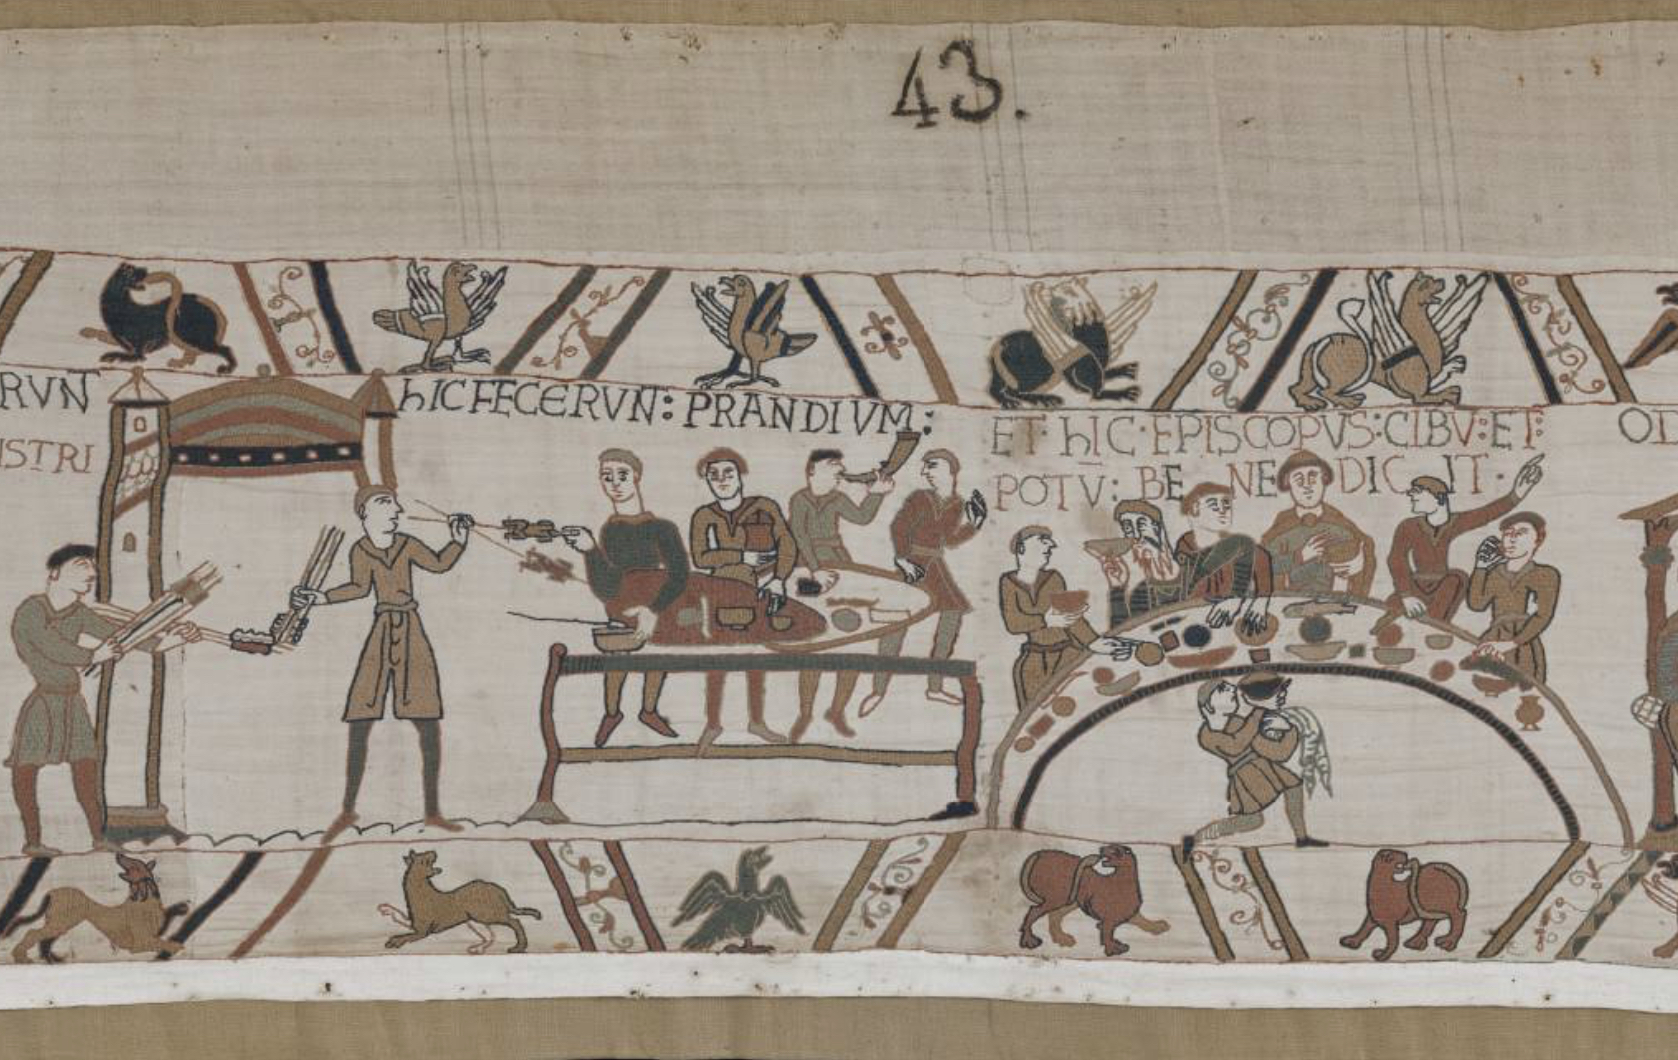 43.
RVN
ISTRI
hIC FECERVN: PRANDIVM:
ET· hIC·EPISCOPVS:CIBV̄:ET:
POTV̄: BENEDICIT·